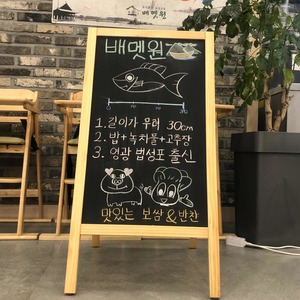 배멧원
배멧원
1. 길이가 무려 30cm
2. 밥+녹차물+고추장
3. 영광 법성포 출신
맛있는 보쌈 & 반찬